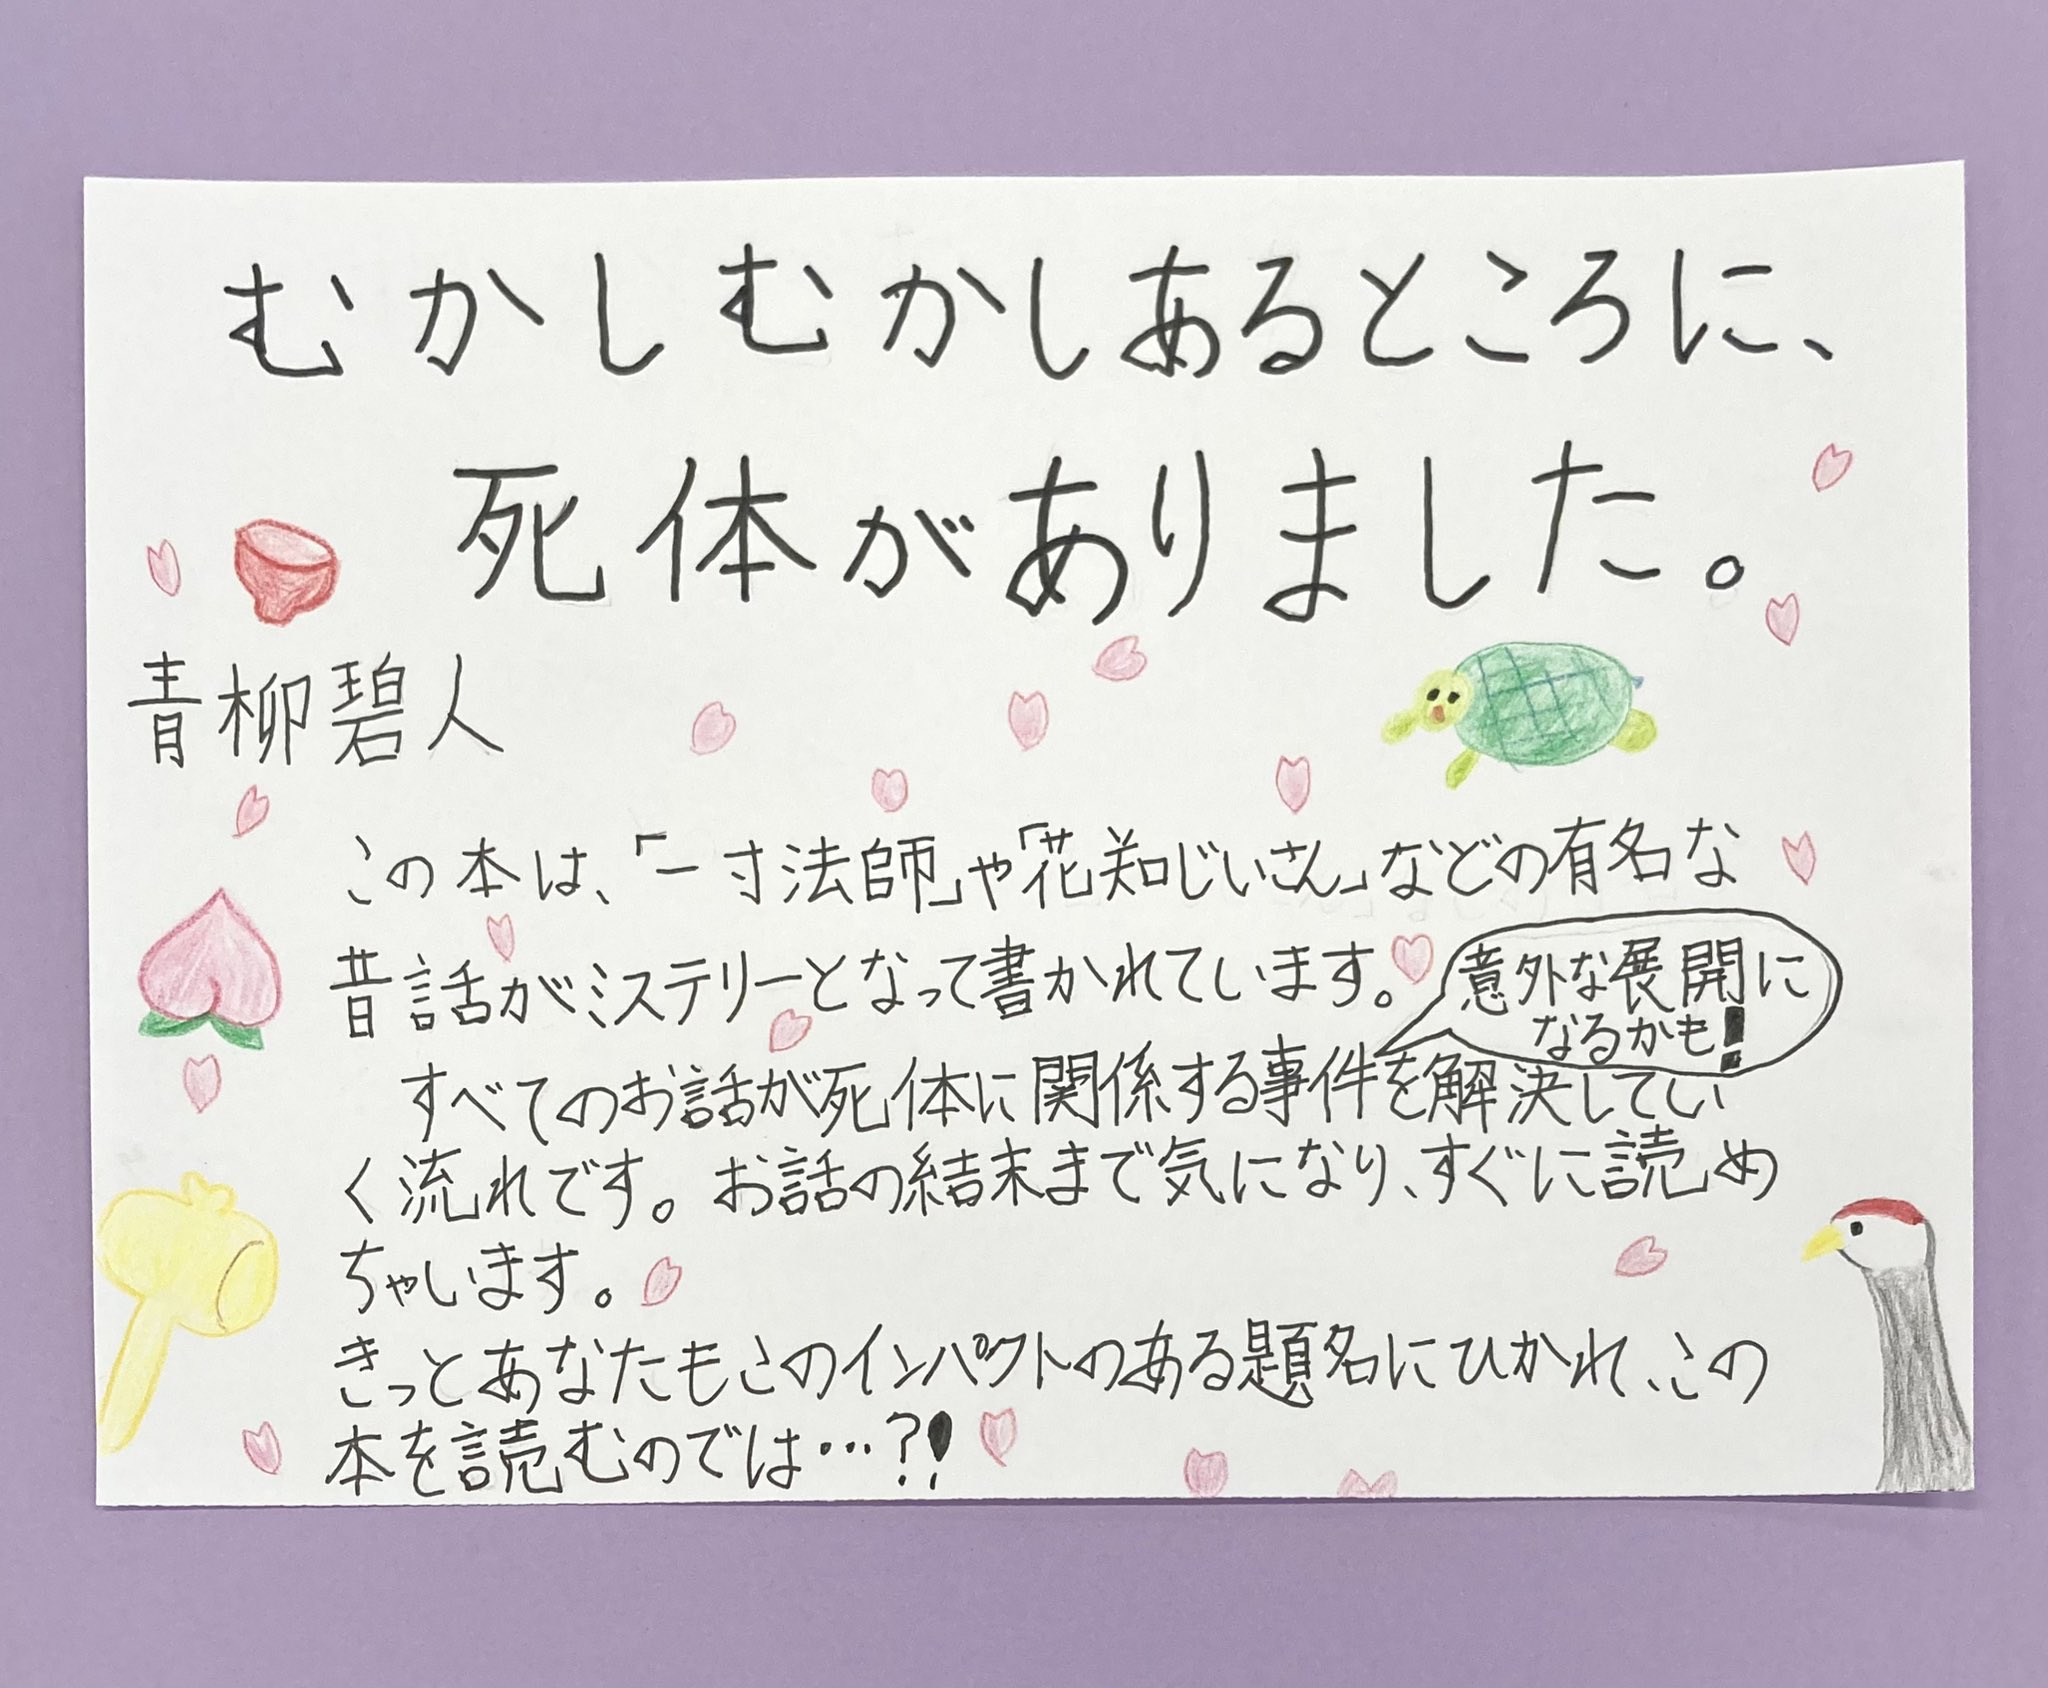 むかしむかしあるところに、
死体がありました。
青柳碧人
この本は、「一寸法師」や「花知じいさん」などの有名な
昔話がミステリーとなって書かれています。
意外な展開に
なるかも!
すべてのお話が死体に関係する事件を解決してい
く流れです。お話の結末まで気になり、すぐに読め
ちゃいます。
きっとあなたもこのインパクトのある題名にひかれ、この
本を読むのでは…?!